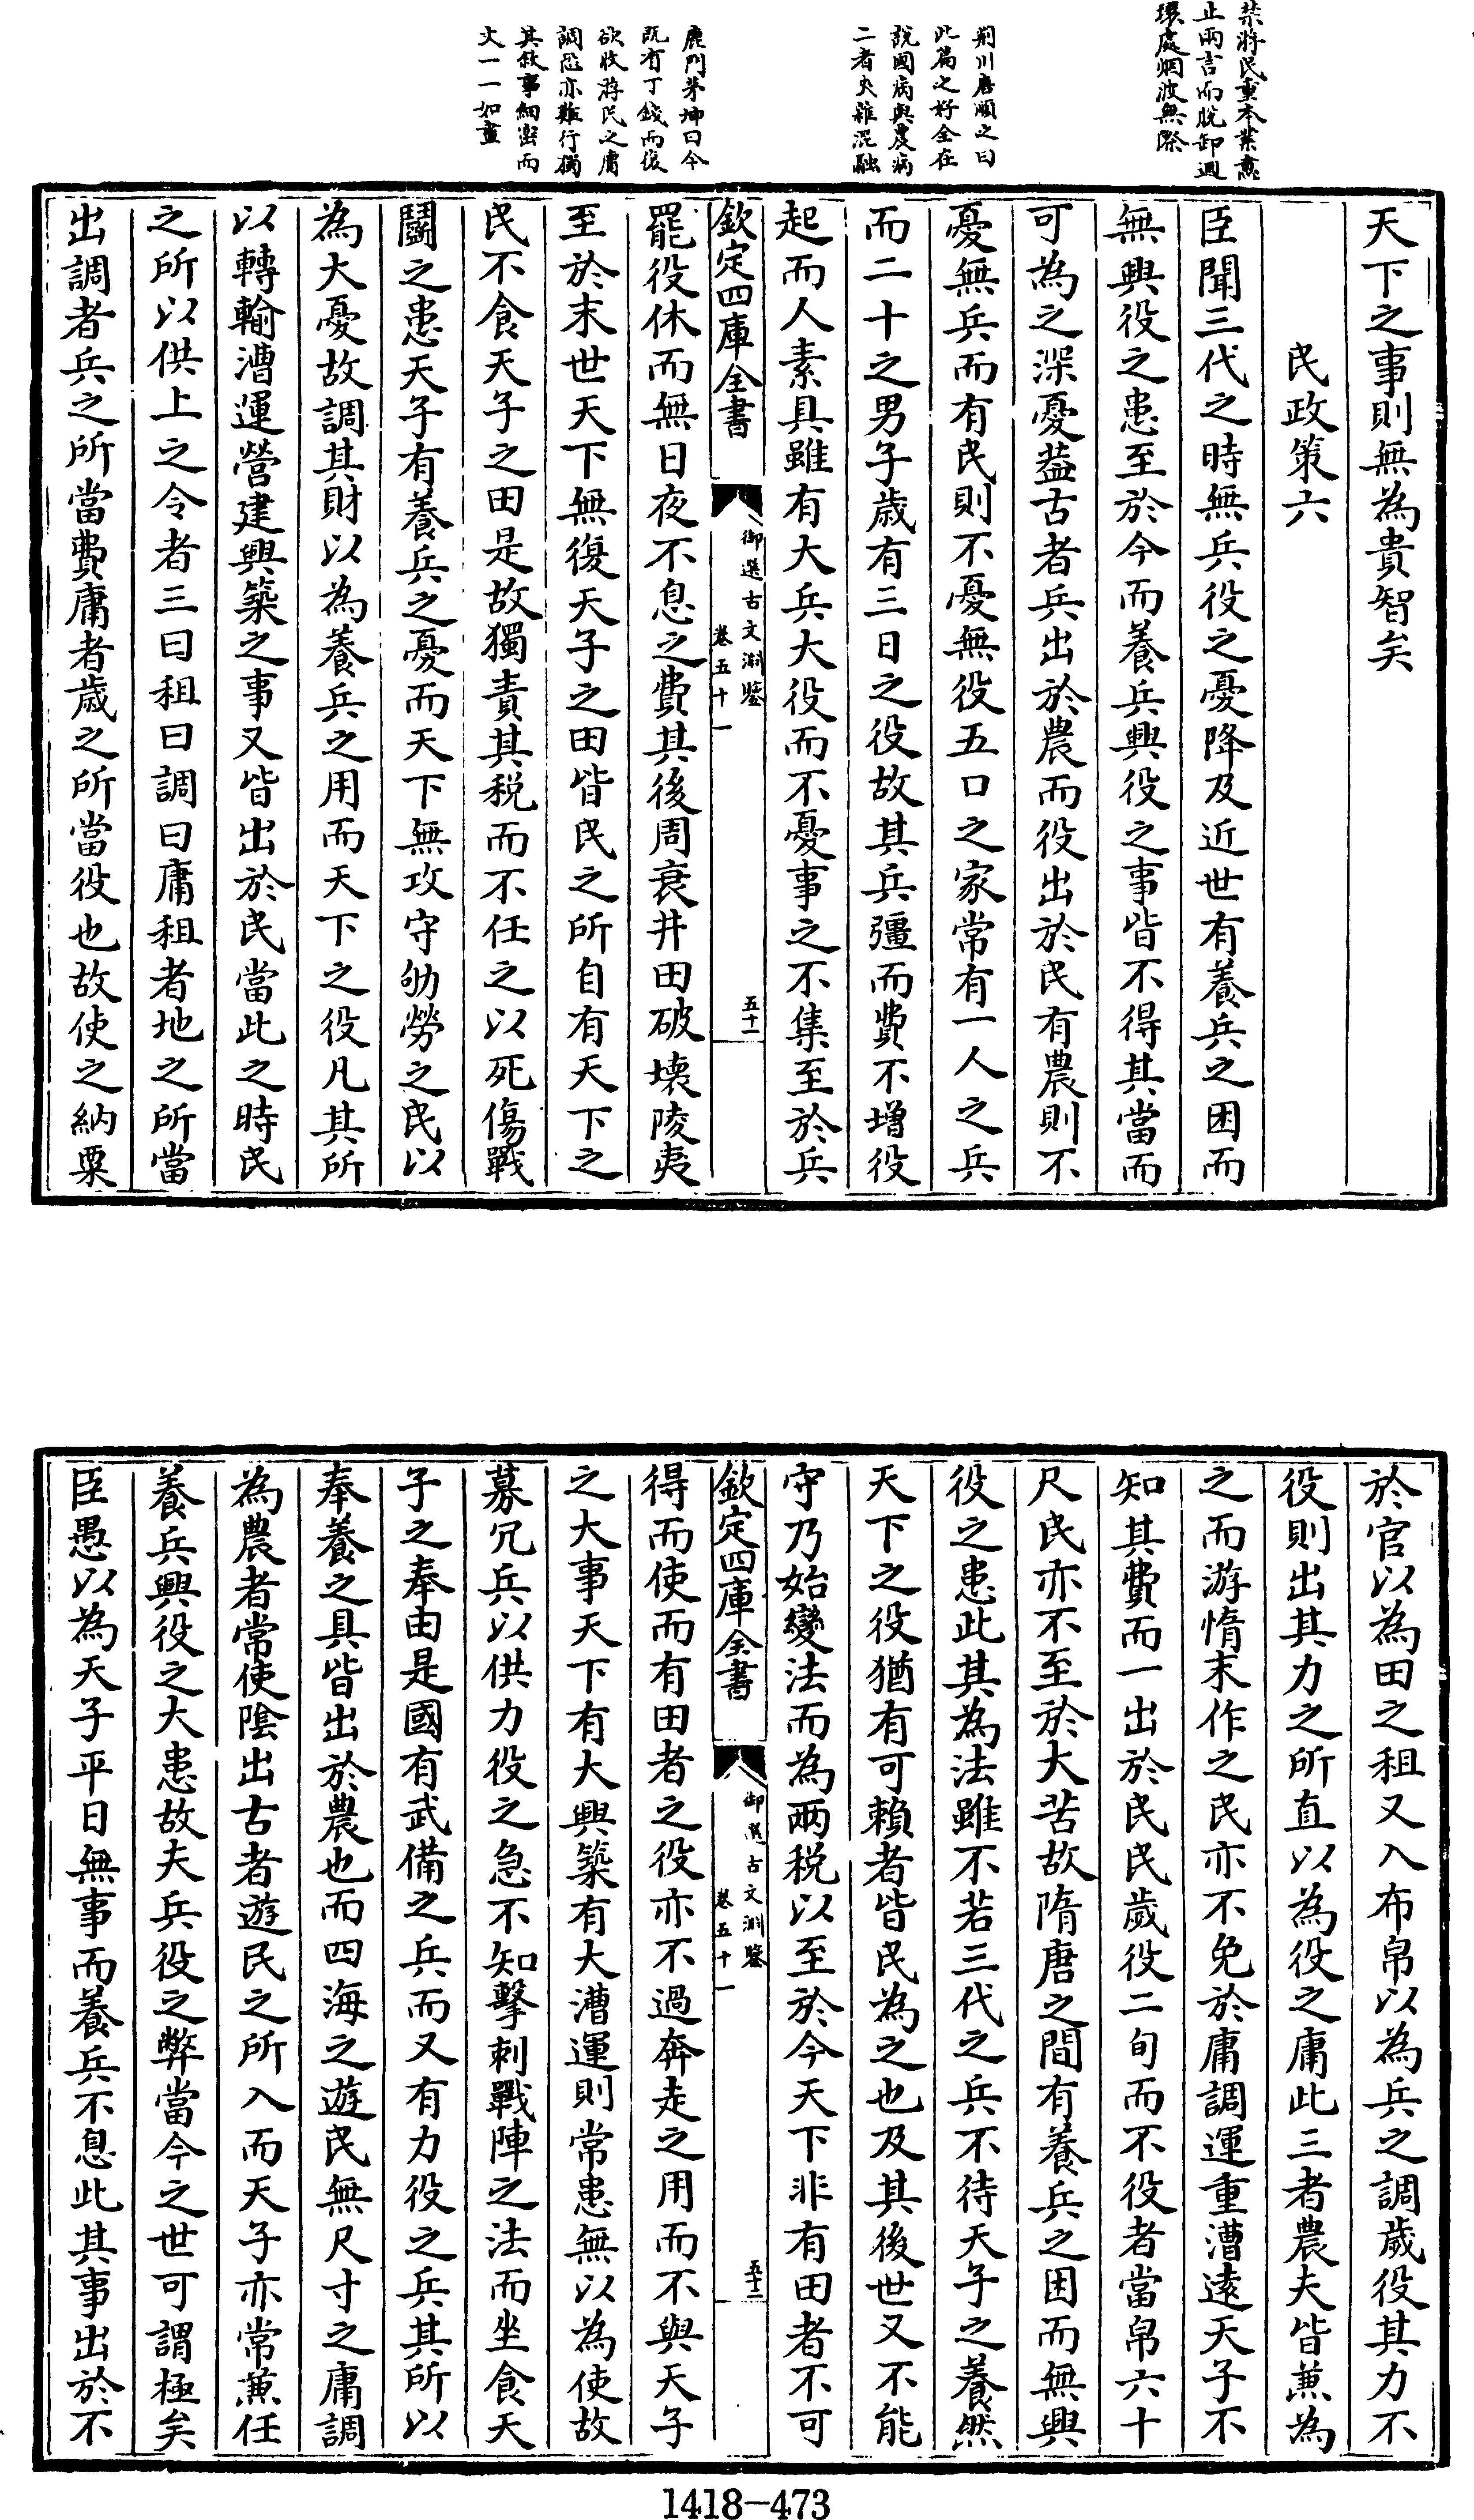 禁將民重本業意
止兩言而脫卸迴
環處烟波無際
荆川唐順之曰
此篇之好全在
說國病與農病
二者夾雜混融
鹿門茅坤曰今
既有丁錢而復
欲收游民之庸
調恐亦難行獨
其敘事細密而
文一一如畫
天下之事則無為貴智矣
民政策六
臣聞三代之時無兵役之憂降及近世有養兵之困而
無興役之患至於今而養兵興役之事皆不得其當而
可為之深憂蓋古者兵出於農而役出於民有農則不
憂無兵而有民則不憂無役五口之家常有一人之兵
而二十之男子歲有三日之役故其兵彊而費不增役
起而人素具雖有大兵大役而不憂事之不集至於兵
欽定四庫全書
御選古文淵鑒
卷五十一
五十一
罷役休而無日夜不息之費其後周衰井田破壞陵夷
至於末世天下無復天子之田皆民之所自有天下之
民不食天子之田是故獨責其稅而不任之以死傷戰
鬭之患天子有養兵之憂而天下無攻守劬勞之民以
為大憂故調其財以為養兵之用而天下之役凡其所
以轉輸漕運營建興築之事又皆出於民當此之時民
之所以供上之令者三曰租曰調曰庸租者地之所當
出調者兵之所當費庸者歲之所當役也故使之納粟
於官以為田之租又入布帛以為兵之調歲役其力不
役則出其力之所直以為役之庸此三者農夫皆兼為
之而游惰末作之民亦不免於庸調運重漕遠天子不
知其費而一出於民民歲役二旬而不役者當帛六十
尺民亦不至於大苦故隋唐之間有養兵之困而無興
役之患此其為法雖不若三代之兵不待天子之養然
天下之役猶有可賴者皆民為之也及其後世又不能
守乃始變法而為兩稅以至於今天下非有田者不可
欽定四庫全書
御選古文淵鑒
卷五十一
五十二
得而使而有田者之役亦不過奔走之用而不與天子
之大事天下有大興築有大漕運則常患無以為使故
募冗兵以供力役之急不知擊刺戰陣之法而坐食天
子之奉由是國有武備之兵而又有力役之兵其所以
奉養之具皆出於農也而四海之遊民無尺寸之庸調
為農者常使陰出古者遊民之所入而天子亦常兼任
養兵興役之大患故夫兵役之弊當今之世可謂極矣
臣愚以為天子平日無事而養兵不息此其事出於不
1418-473